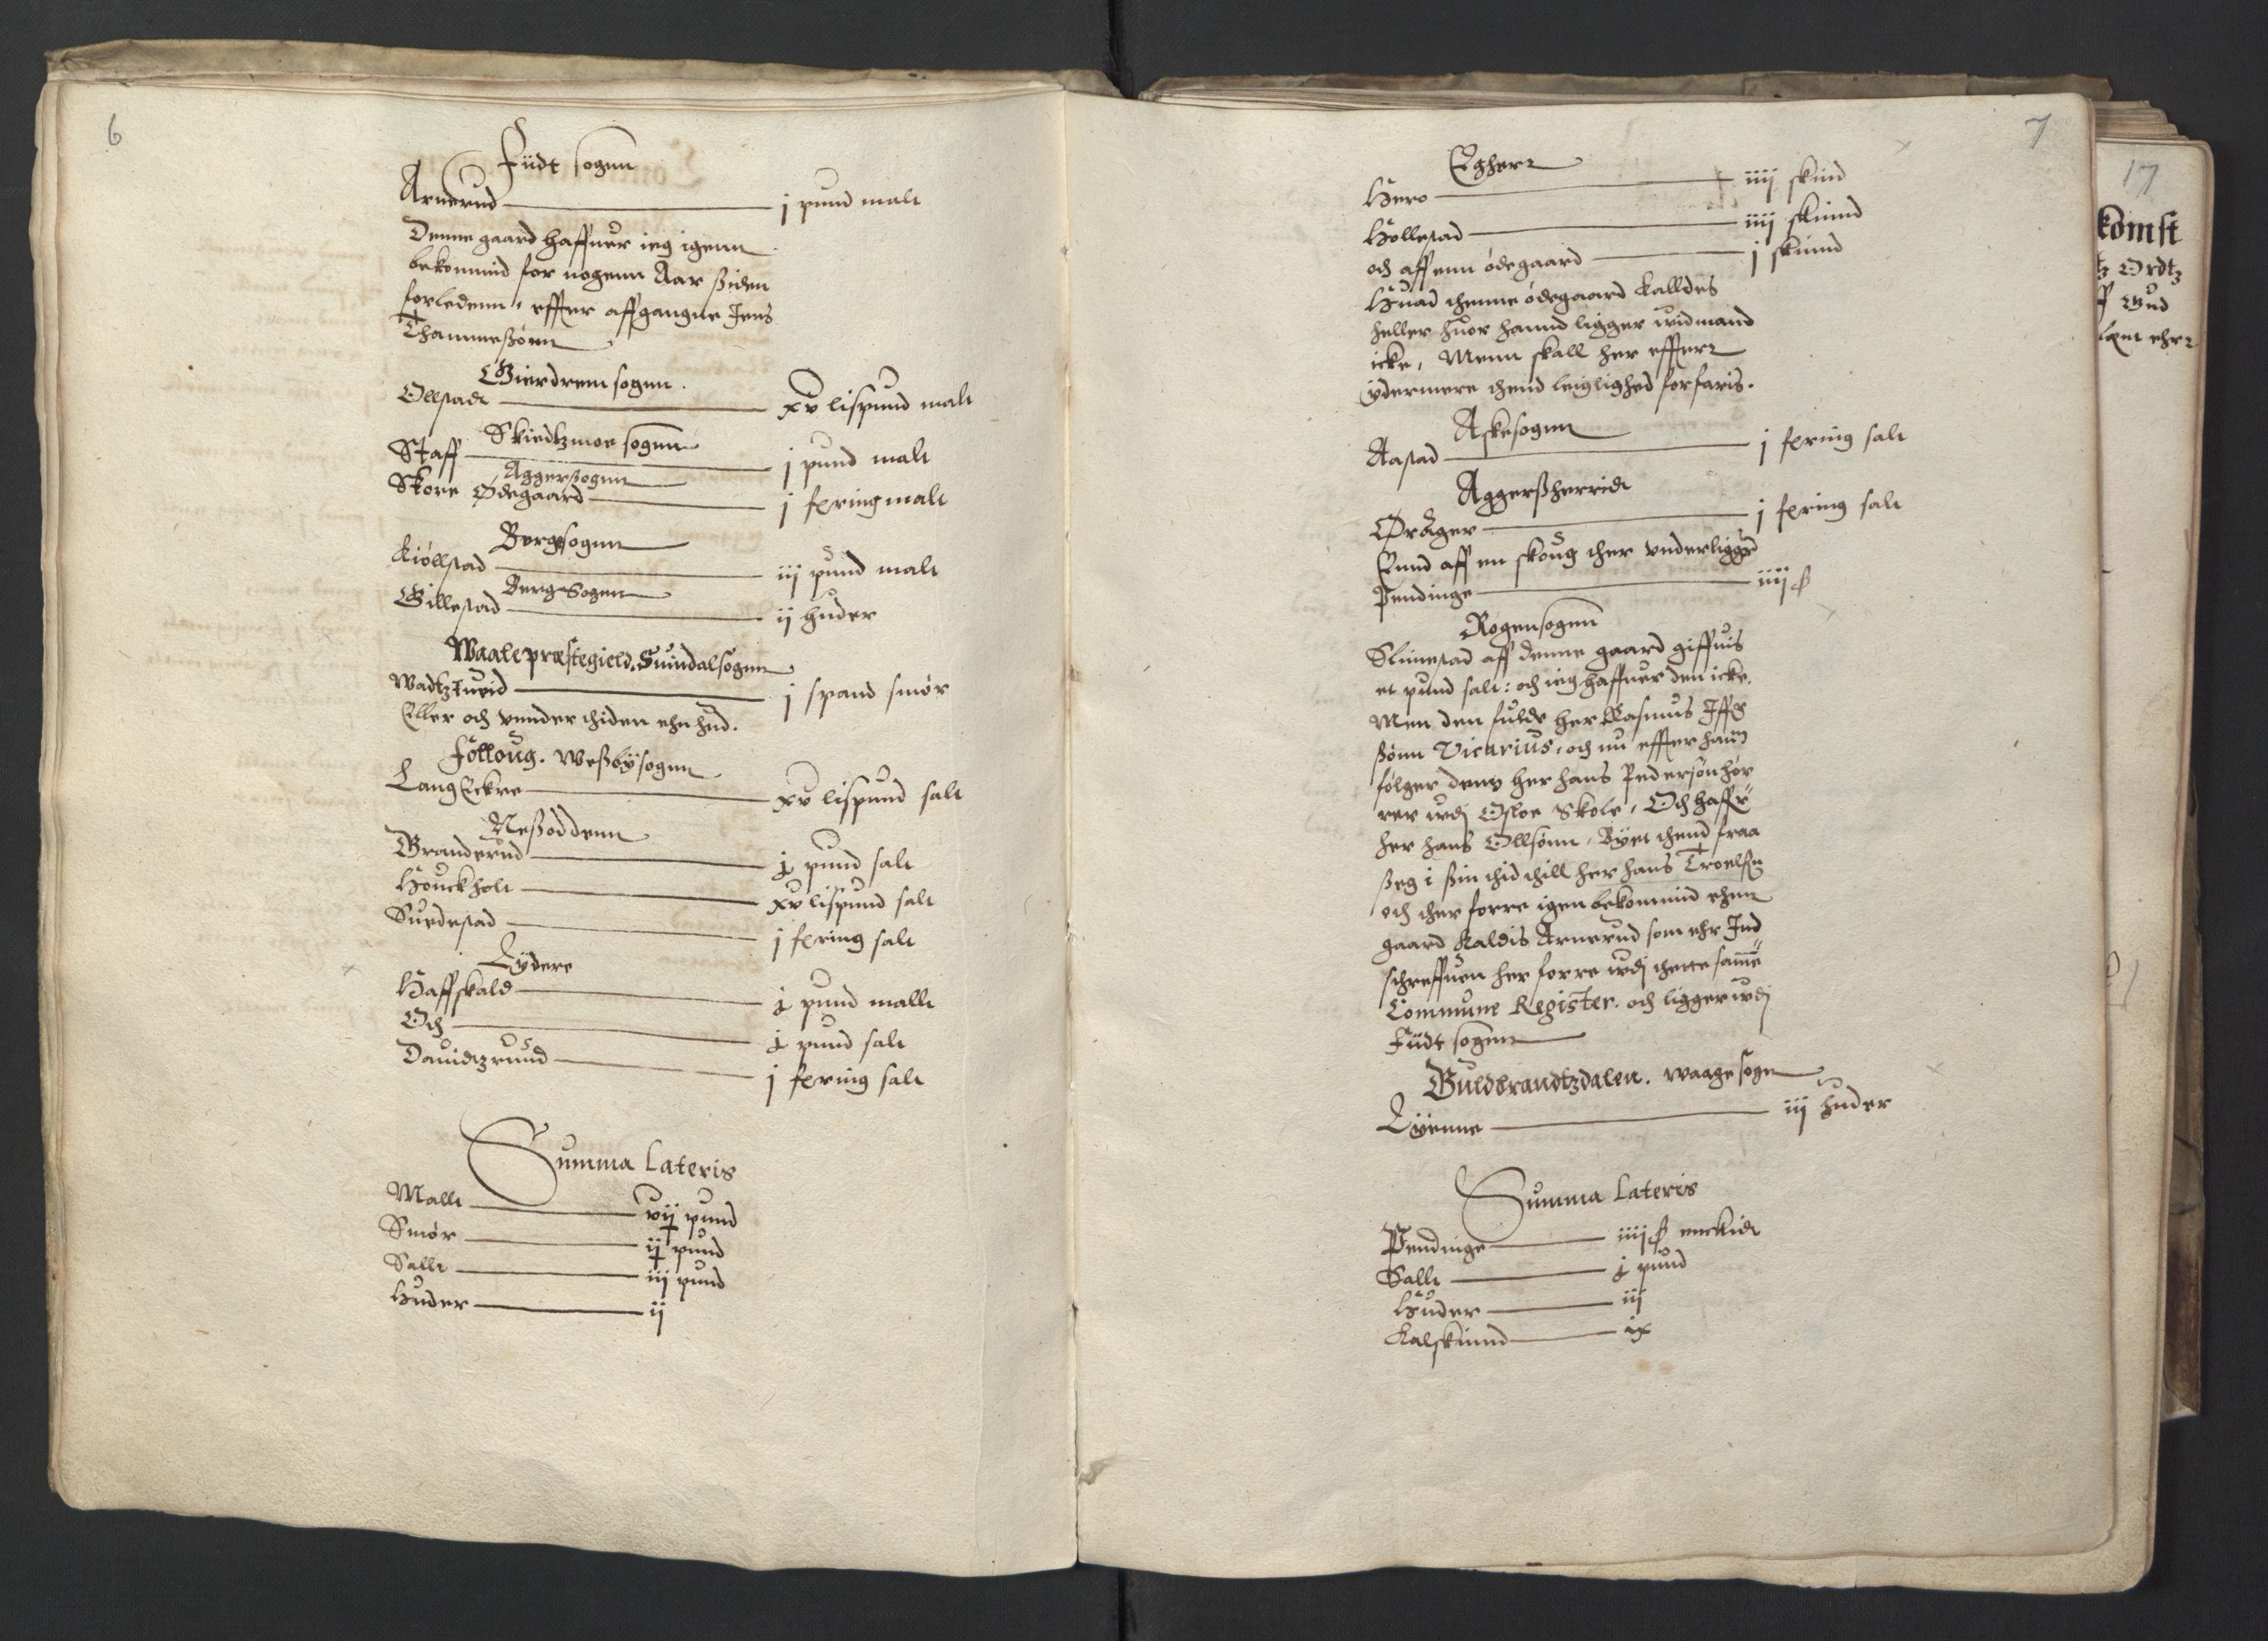 6
Füdt sognn
Arnerud j pund malt
Denne gaard haffuer ieg igenn
bekommid for nogenn Aar siden
forledenn, effter affgangne Jens
Thammessønn
Gierdrem sognn.
Ollstadt xv lispund malt
Skiedtzmoe sognn
Staff j pund malt
Aggersognn
Skore Ødegaard j fering malt
Bergsognn
Kiøllstad iij pund malt
Berg Sogenn
Gillestad ij huder
Waale præstegield. Suindalsognn
Wadtztueid j spand smør
Eller och vnnder thiden ehn hud.
Folloug. Wessbysognn
Lang Eckre xv lispund salt
Nessoddenn
Branderud j pund salt
Houckholt xv lispund salt
Suedestad j fering salt
Lydere
Haffskald j pund mallt
Och j pund salt
Dauidtzrund j fering salt
Summa Lateris
Mallt vij pund
Smør ij pund
Sallt iij pund
Huder ij
7
Egherr
Hero iiij skind
Hollestad iiij skinnd
och aff enn ødegaard j skinnd
Huad thenne ødegaard kalldes
heller huor hannd ligger widmand
icke, Menn skall her effterr
ydermere thend leiglighed forfaris.
Askesognn
Aastad j fering salt
Aggerssherridt
Ørager j fering salt
Ennd aff en skoug ther vnderligger
Pendinge iiij ß
Rogensognn
Slimestad aff denne gaard giffuis
et pund salt: och ieg haffuer den icke.
Men den fulde her Rasmus Iffer
ssønn Vicarius, och nu effter hann
følger denn her hans Pedersøn hør
rer wdj Osloe Skole, Och haffr
her hans Ollsønn, Byet thend fraa
sseg i ssin thid thill her hans Troelssn
och ther forre igen bekommid ehnn
gaard kaldis Arnerud som ehr Ind
schreffuen her forre wdj thette samme
Commune Register. och ligger wdj
Füdt sognn
Guldbrandtzdalen. Waage sogn
Lyenne iij huder
Summa Lateris
Pendinge iiij ß enckidt
Sallt j pund
Huder iij
Kalskinnd ix
17
komst
tz Ordtz
ff Gud
ehrr